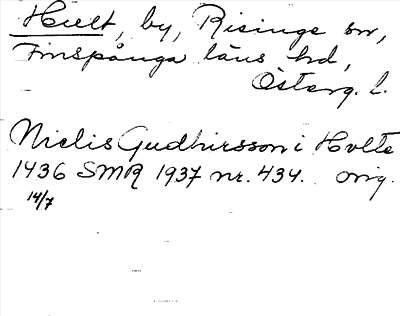 Hult, by, Risinge sn,
Finspånga läns hd,
Österg. l.
Niclis Gudhirsson i Hvlte
1436 SMR 1937 nr. 434. org.
14/7